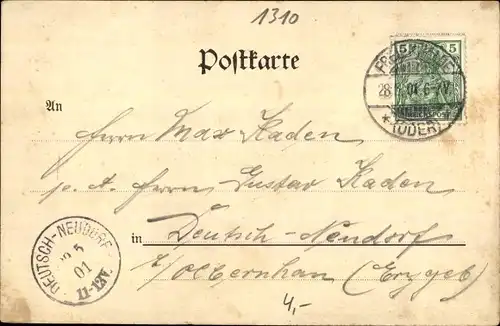 1310
Postkarte
5 5
28. 01. 6-7V.
* (ODER)
An
Herrn Max Kaden
p. A. Herrn Gustav Kaden
in Deutsch-Neudorf
b/Olbernhau (Erzgeb)
4,-
DEUTSCH-NEUDORF
5
01
11-12V.